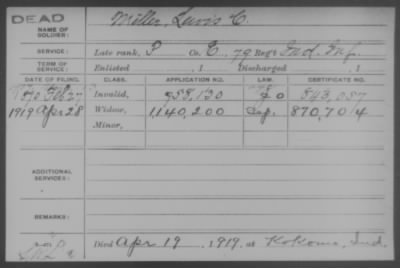 DEAD
NAME OF SOLDIER: Miller, Lewis C.
SERVICE: Late rank, P Co. E, 79 Reg't Ind. Inf.
TERM OF SERVICE: Enlisted , 1 Discharged , 1
DATE OF FILING. CLASS. APPLICATION NO. LAW. CERTIFICATE NO.
Feb 27 Invalid, 958,130 90 843,057
1919 Apr 28 Widow, 1,140,200 870,704
Minor,
ADDITIONAL SERVICES:
REMARKS:
Died Apr 19, 1919, at Kokomo, Ind.